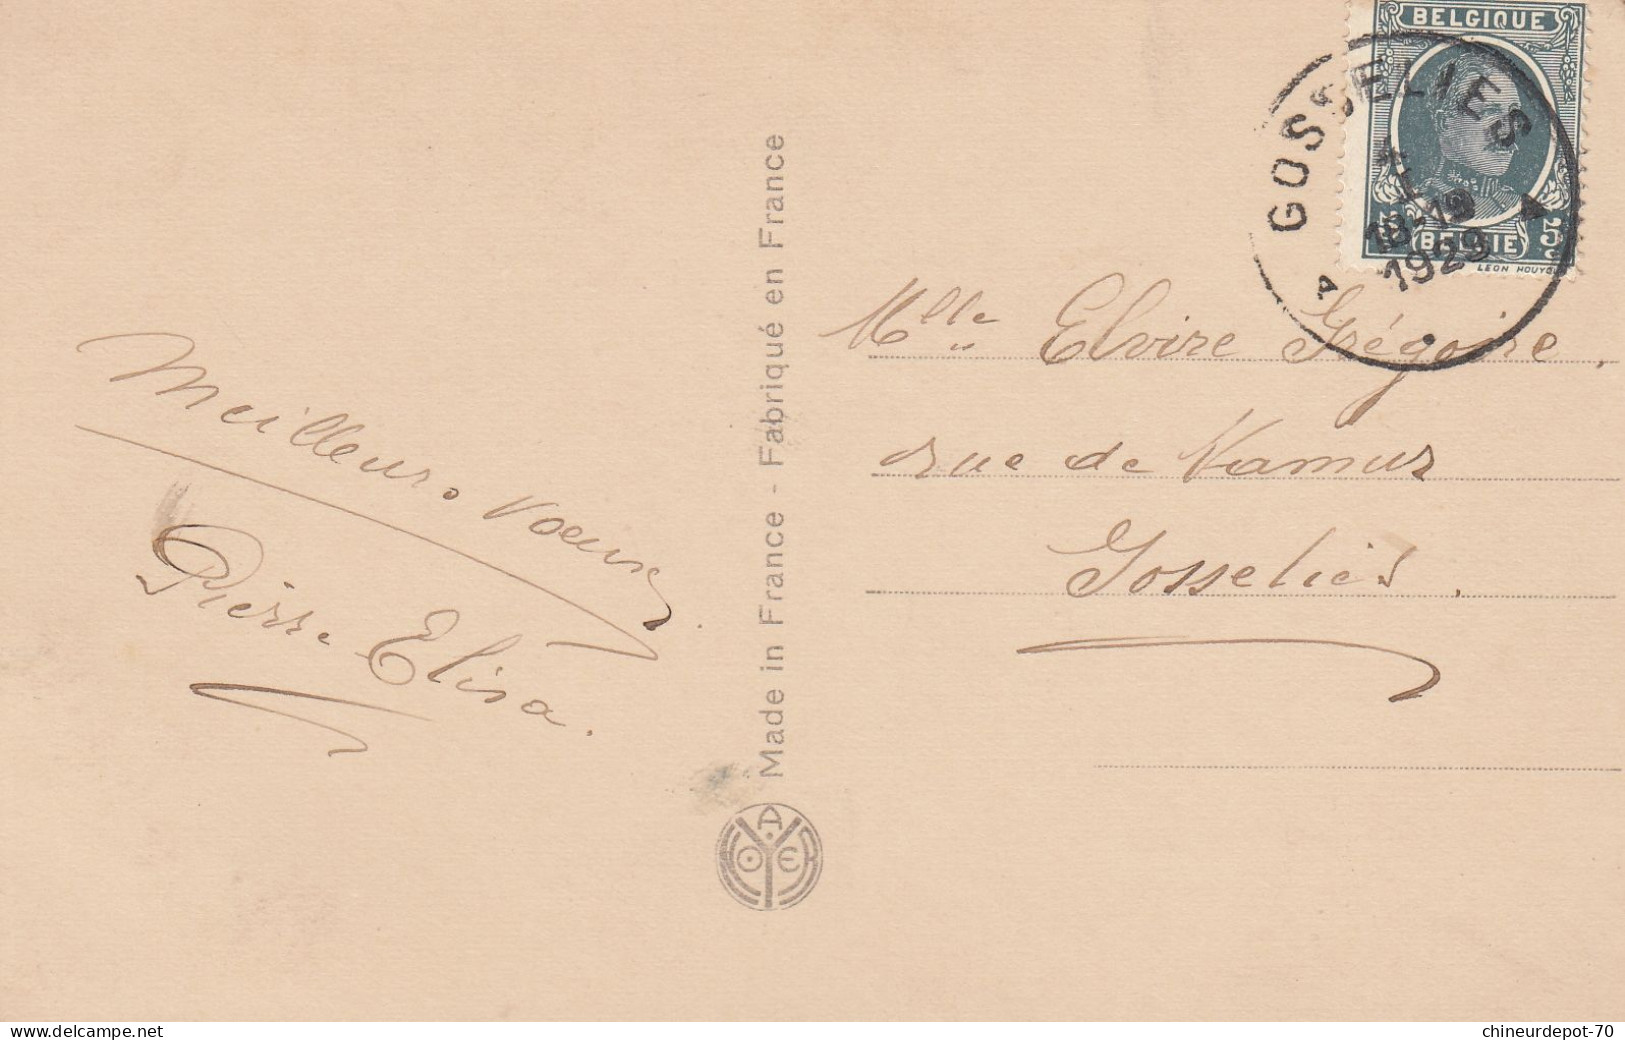 BELGIQUE
GOSSELIES
18-19
1929
5c 5c
BELGIE
LEON HOUYOU
A A
Meilleurs voeux
Pierre Elisa.
Made in France - Fabriqué en France
A
O Y E
Mlle Elvire Grégoire,
rue de Namur
Gosselies.
www.delcampe.net
chineurdepot-70